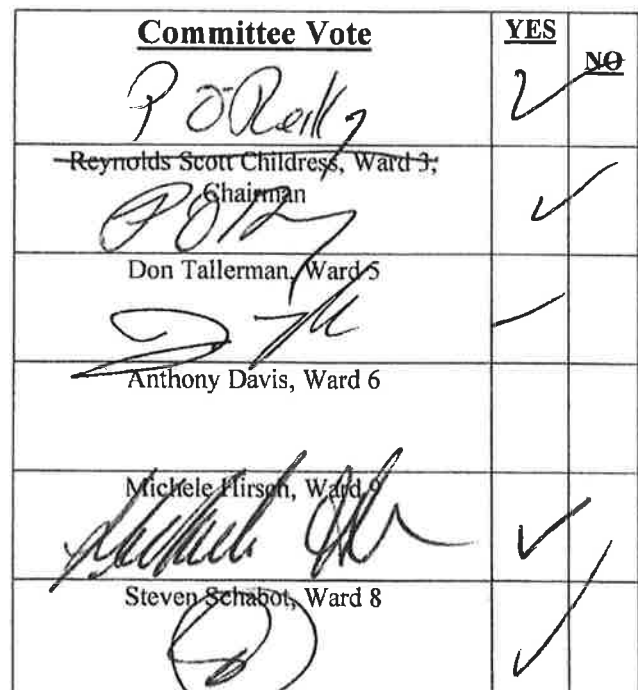 Committee Vote
YES
NO
P O'Reilly
Reynolds Scott Childress, Ward 3,
Chairman
Don Tallerman, Ward 5
Anthony Davis, Ward 6
Michele Hirsch, Ward 9
Steven Schabot, Ward 8